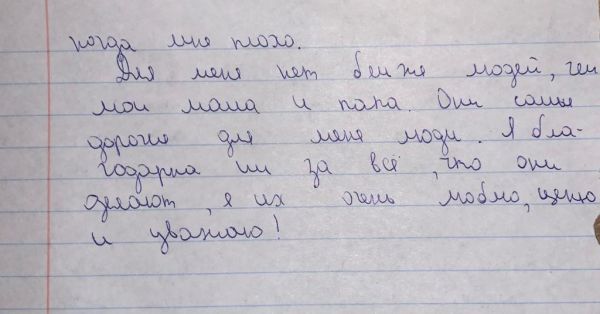 когда мне плохо.
Для меня нет ближе людей, чем
мои мама и папа. Они самые
дорогие для меня люди. Я бла-
годарна им за всё, что они
делают, я их очень люблю, ценю
и уважаю!